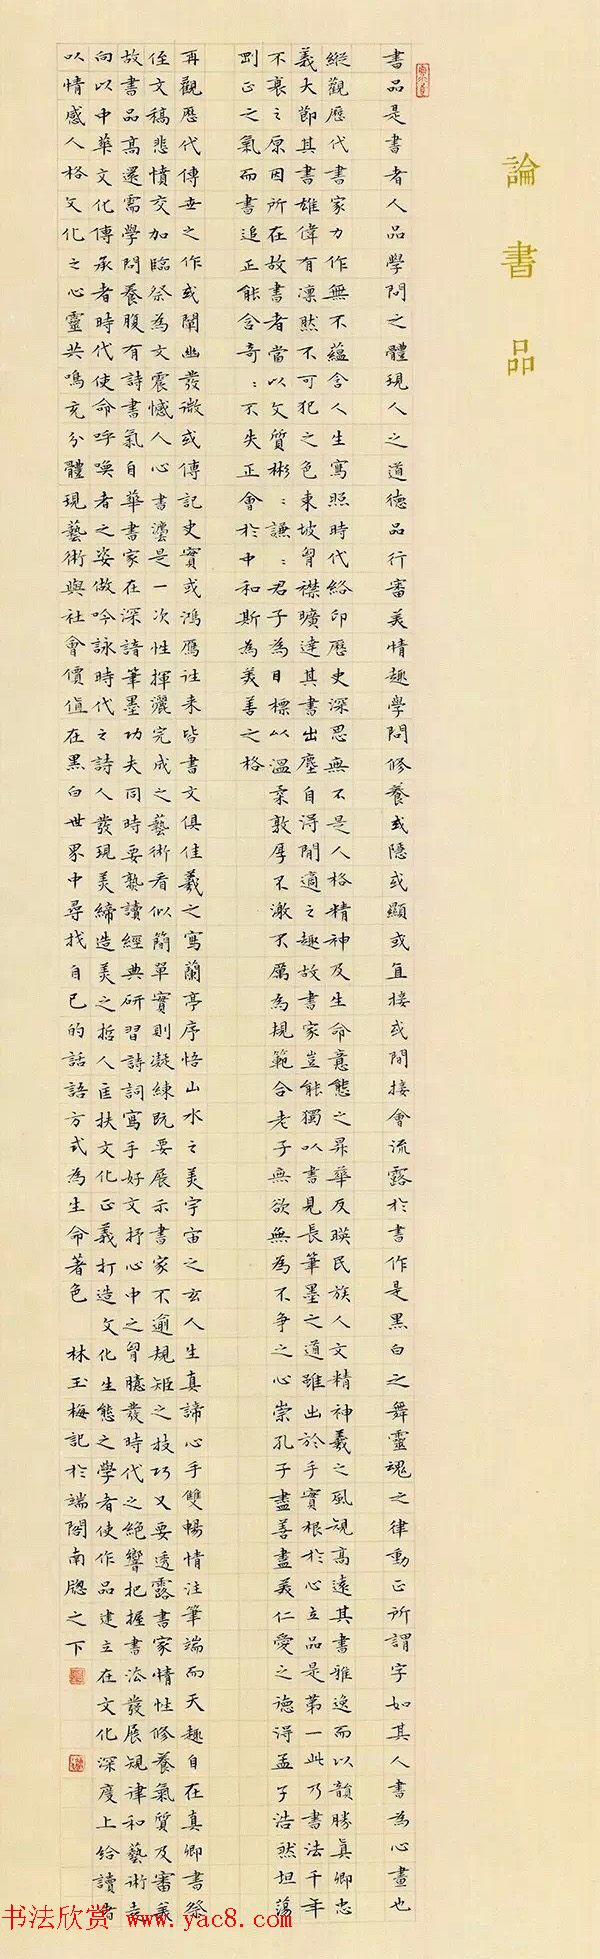 論書品
書品是書者人品學問之體現人之道德品行審美情趣學問修養或隱或顯或直接或間接會流露於書作是黑白之舞靈魂之律動正所謂字如其人書為心畫也
縱觀歷代書家力作無不蘊含人生寫照時代絡印歷史深思無不是人格精神及生命意態之昇華反映民族人文精神羲之風規高遠其書雅逸而以韻勝真卿忠
義大節其書雄偉有凜然不可犯之色東坡胷襟曠達其書出塵自得閒適之趣故書家豈能獨以書見長筆墨之道雖出於手實根於心立品是第一此乃書法千年
不衰之原因所在故書者當以文質彬彬謙謙君子為目標以溫柔敦厚不激不厲為規範合老子無欲無為不争之心崇孔子盡善盡美仁愛之德得孟子浩然坦蕩
剛正之氣而書追正能含奇奇不失正會於中和斯為美善之格
再觀歷代傳世之作或闡幽發微或傳記史實或鴻鴈往來皆書文俱佳羲之寫蘭亭序悟山水之美宇宙之玄人生真諦心手雙暢情注筆端而天趣自在真卿書祭
侄文稿悲憤交加臨祭為文震憾人心書灋是一次性揮灑完成之藝術看似簡單實則凝練既要展示書家不逾規矩之技巧又要透露書家情性修養氣質及審美
故書品高還需學問養腹有詩書氣自華書家在深諳筆墨功夫同時要熟讀經典研習詩詞寫手好文抒心中之胷臆發時代之絕響把握書法發展規律和藝術走
向以中華文化傳承者時代使命呼喚者之姿做吟詠時代之詩人發現美締造美之哲人匡扶文化正義打造文化生態之學者使作品建立在文化深度上給讀者
以情感人格文化之心靈共鳴充分體現藝術與社會價值在黑白世界中尋找自己的話語方式為生命著色 林玉梅記於端閤南牕之下
书法欣赏 www.yac8.com